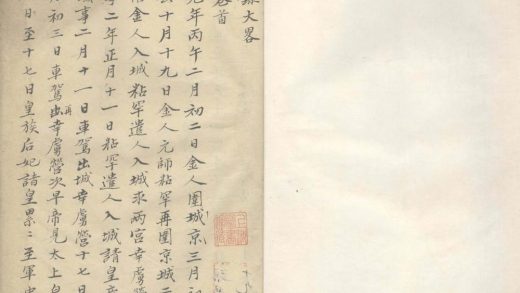 錄大畧
卷首
元年丙午二月初二日金人圍城京三月初
十月十九日金人元帥粘罕再圍京城二
金人入城粘罕遣人入城求兩宮幸虜
二年正月十一日粘罕遣人入城請皇
事二月十一日車駕出城幸虜營十七日
初三日車駕再出幸虜營次早帝見太上皇
日至十七日皇族后妃諸皇累〻至軍中